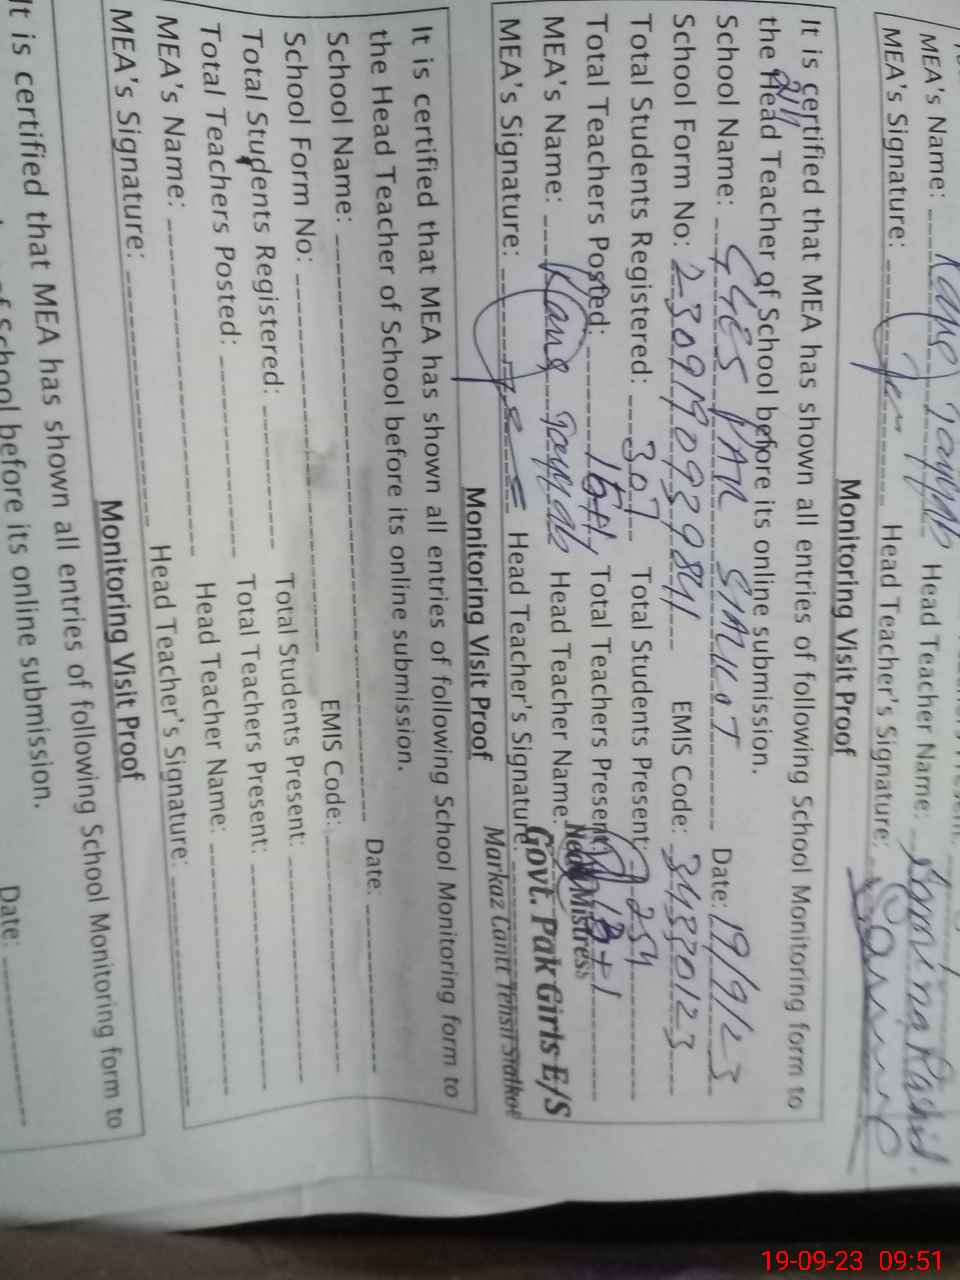 MEA's Name: Rana Tayyab Head Teacher Name: Samina Rashid.
MEA's Signature: Head Teacher's Signature:
Monitoring Visit Proof
It is certified that MEA has shown all entries of following School Monitoring form to
the Head Teacher of School before its online submission.
School Name: GGES PAK SIALKOT Date: 19/9/23
School Form No: EMIS Code: 34330123
Total Students Registered: 307 Total Students Present: 254
Total Teachers Posted: Total Teachers Present:
MEA's Name: Rana Tayyab Head Teacher Name: Head Mistress
MEA's Signature: Head Teacher's Signature: Govt. Pak Girls E/S
Markaz Cantt Tehsil Sialkot
Monitoring Visit Proof
It is certified that MEA has shown all entries of following School Monitoring form to
the Head Teacher of School before its online submission.
School Name: Date:
School Form No: EMIS Code:
Total Students Registered: Total Students Present:
Total Teachers Posted: Total Teachers Present:
MEA's Name: Head Teacher Name:
MEA's Signature: Head Teacher's Signature:
Monitoring Visit Proof
It is certified that MEA has shown all entries of following School Monitoring form to
of School before its online submission.
Date:
19-09-23 09:51